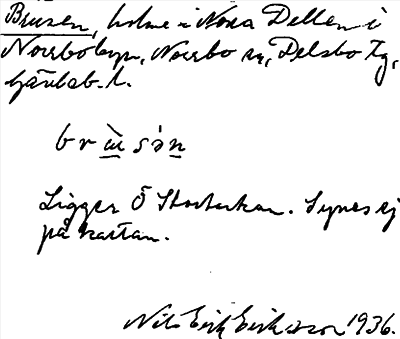 Brusen, holme i Norra Dellen i
Norrbobyn, Norrbo sn, Delsbo tg,
Gävleb. l.
Ligger Ö Storherkan. Synes ej
på kartan.
Nils Erik Eriksson 1936.